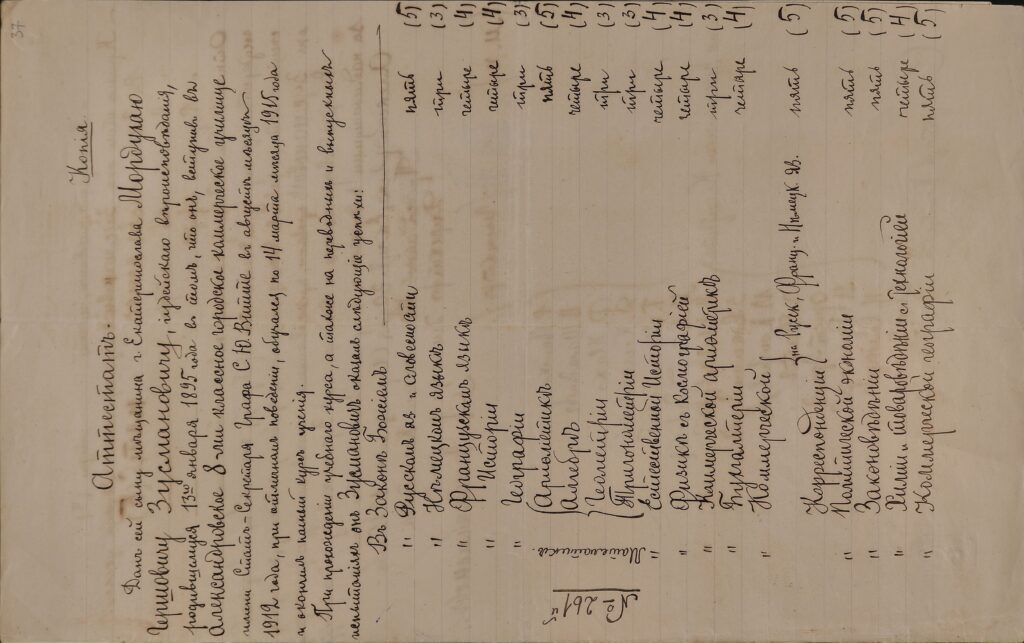 37
Копія
Аттестатъ.
Данъ сей сыну мѣщанина г. Екатеринослава Мордухаю
Гершовичу Зусмановичу, іудейскаго вѣроисповѣданія,
родившемуся 13го января 1895 года въ томъ, что онъ, вступивъ въ
Александровское 8-ми классное городское коммерческое училище
имени Статсъ-Секретаря Графа С. Ю. Витте въ августѣ мѣсяцѣ
1912 года, при отличномъ поведеніи, обучался по 14 марта мѣсяца 1915 года
и окончилъ полный курсъ ученія.
При прохожденіи учебнаго курса, а также на переводныхъ и выпускныхъ
испытаніяхъ онъ, Зусмановичъ оказалъ слѣдующіе успѣхи:
Въ Законѣ Божіемъ
" Русскомъ яз и словесности пять (5)
" Нѣмецкомъ языкѣ три (3)
" Французскомъ языкѣ четыре (4)
" Исторіи четыре (4)
" Географіи три (3)
Математикѣ. Ариѳметикѣ пять (5)
Алгебрѣ четыре (4)
Геометріи три (3)
Тригонометріи три (3)
" Естественной Исторіи четыре (4)
" Физикѣ съ Космографіей четыре (4)
" Коммерческой ариѳметикѣ три (3)
" Бухгалтеріи четыре (4)
" Коммерческой
Корреспонденціи на Русск, Франц. и Нѣмецк яз. пять (5)
" Политической экономіи пять (5)
" Законовѣдѣніи пять (5)
" Химіи и товаровѣдѣніи съ технологіей четыре (4)
" Коммерческой географіи пять (5)
№ 261